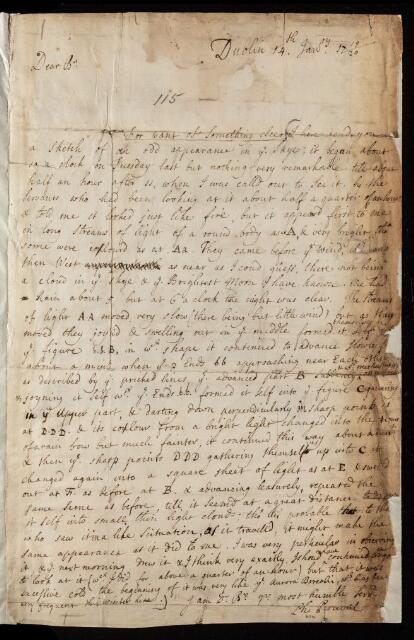 Dublin 14.th Jan.ry 17 19/20
Dear Br.
115
For want of Something else I here send you
a Sketch of an odd appearance in ye Skye; it began about
a clock on Tuesday last but nothing very remarkable till about
half an hour after 5, when I was call'd out to See it. by the
Servants who had been looking at it about half a quarter of an hour
& told me it looked just like fire but it appear'd first to me
in long Streams of light of a round body as A & very bright
some were coloured as at Aa They came before ye wind,
then West as near as I coud guess, there not being
a cloud in ye Skye & ye Brightest Moon I have known. We had
rain about 5, but at 6 a clock the night was clear. The Streams
of light AA moved very slow (there being but little wind) but as they
moved they joyn'd & swelling out in ye middle formed it self
ye figure BbB, in wch shape it continued to advance slowly
about a minute when ye 2 Ends bb approaching near Each other
as described by ye pricked lines, ye advanced part B
joyning it Self wth ye Ends bb formed it self into ye figure C
in ye Upper part, & darting down perpendicularly in Sharp points
at DDD. & its colour from a bright light changed into the
of a rain bow but much fainter, it continued this way about
& then ye Sharp points DDD gathering themselves up into C it
changed again into a square Sheet of light as at E &
out at F. as before at B. & advancing leasurely, repeated the
same scene as before, till it seem'd at a great distance to
it self into small thin light clouds: tho tis probable that to those
who saw it in a like Situation, as it travell'd it might make the
same appearance as it did to me. I was very particular in observing
it & next morning drew it & I think very exactly, & shoud have continued longer
to look at it (wch I did for above a quarter of an hour) but that it was
excessive cold the beginning of it was very like ye Aurora Borealis, wch has been
very frequent this winter here. I am Dr Br. yr most humble Servt.